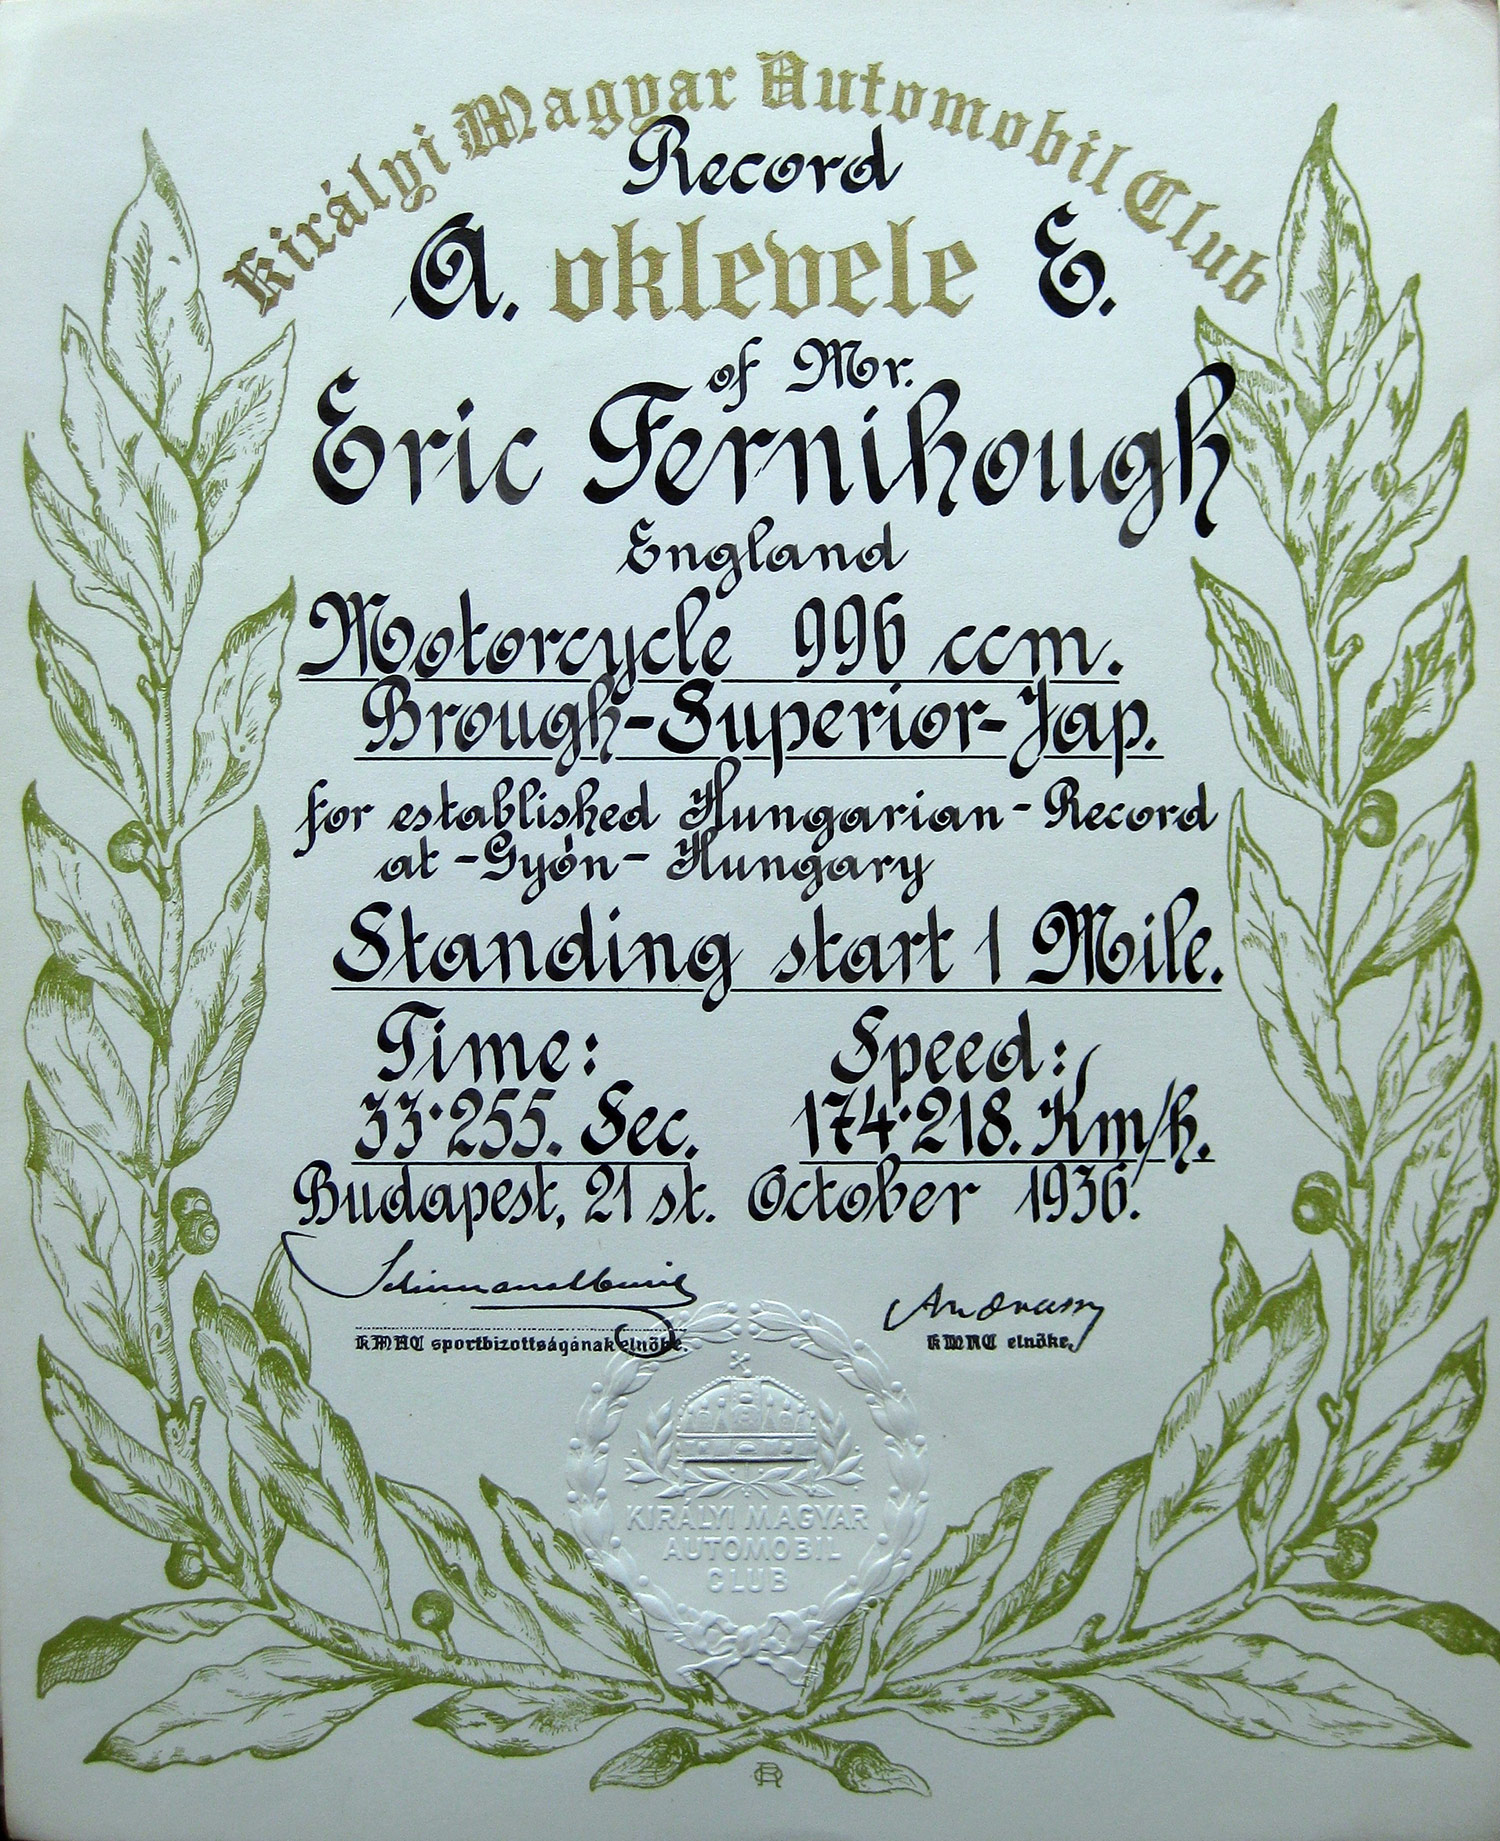 Királyi Magyar Automobil Club
Record
A. oklevele E.
of Mr.
Eric Fernihough
England
Motorcycle 996 ccm.
Brough-Superior-Jap.
for established Hungarian-Record
at -Gyón- Hungary
Standing start 1 Mile.
Time: Speed:
33·255. Sec. 174·218. Km/h.
Budapest, 21 st. October 1936.
Andrássy
KMAC sportbizottságának elnöke. KMAC elnöke.
KIRÁLYI MAGYAR
AUTOMOBIL
CLUB